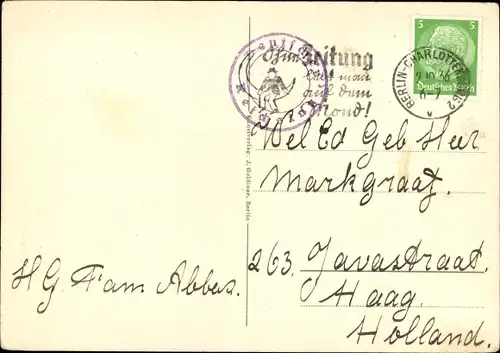 Ohne Zeitung
lebt man
auf dem
Mond!
5 5
Deutsches Reich
BERLIN-CHARLOTTENBURG 2
Wel Ed Geb Heer
Markgraaf.
263. Javastraat.
Haag.
Holland.
H G. Fam Abbas.
J. Goldiner, Berlin